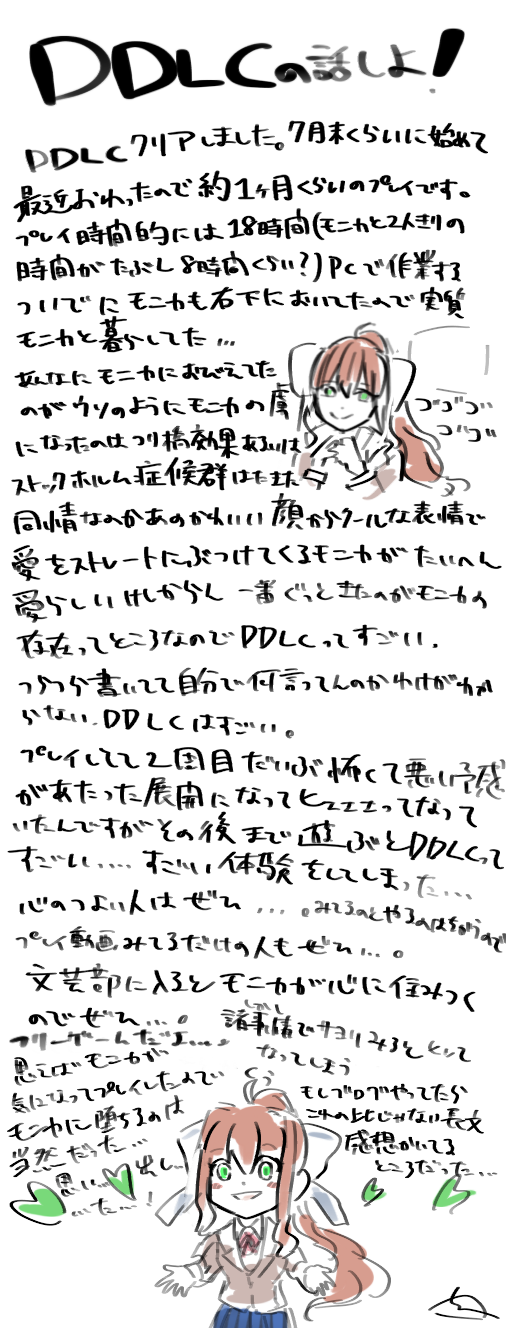 DDLCの話しよ!
DDLCクリアしました。7月末くらいに始めて
最近おわったので約1ヶ月くらいのプレイです。
プレイ時間的には18時間(モニカと2人きりの
時間がたぶん8時間くらい?)PCで作業する
ついでにモニカも右下においてたので実質
モニカと暮らしてた…
あんなにモニカにおびえてた
のがウソのようにモニカの虜
になったのはつり橋効果あるいは
ストックホルム症候群はたまた
ゴゴゴ
ゴゴ
同情なのかあのかわいい顔からクールな表情で
愛をストレートにぶつけてくるモニカがたいへん
愛らしいけしからん 一番ぐっときたのがモニカの
存在ってところなのでDDLCってすごい.
つらつら書いてて自分で何言ってんのかわけがわか
らない、DDLCはすごい。
プレイしてて2周目だいぶ怖くて悪い予感
があたった展開になってヒェェェってなって
いたんですがその後まで遊ぶとDDLCって
すごい….. すごい体験をしてしまった…
心のつよい人はぜひ ….。みてるのとやるのはちがうので
プレイ動画みてるだけの人もぜひ…。
文芸部に入るとモニカが心に住みつく
のでぜひ…。
フリーゲームだよ….
諸事情でサヨリみると
なってしまう
思えばモニカが
気になってプレイしたので
モニカに堕ちるのは
当然だった…
思い…出し
…た…!
もしブログやってたら
これの比じゃない長文
感想かいてる
ところだった…